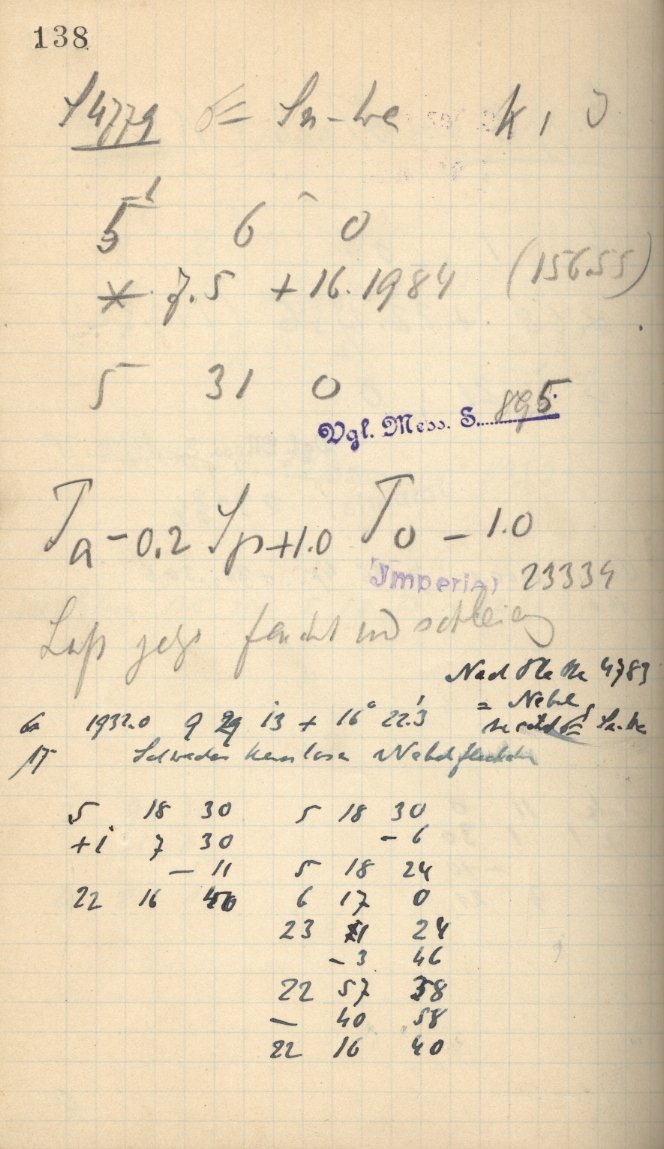 138
S 4779 σ = Sn-we k, J
5 6 0
* 7.5 +16.1984 (156.55)
5 31 0
Vgl. Mess. S. 895
Ta -0.2 Sp +1.0 To -1.0
Imperial 23334
Luft jetzt feucht und
Nach Platte 4783
= Nebel
1932.0 9 29 13 + 16° 22.3
Schwacher kernloser Nebelflecken
5 18 30 5 18 30
+1 7 30 - 6
- 11 5 18 24
22 16 40 6 17 0
23 24
- 3 46
22 57 38
- 40 58
22 16 40